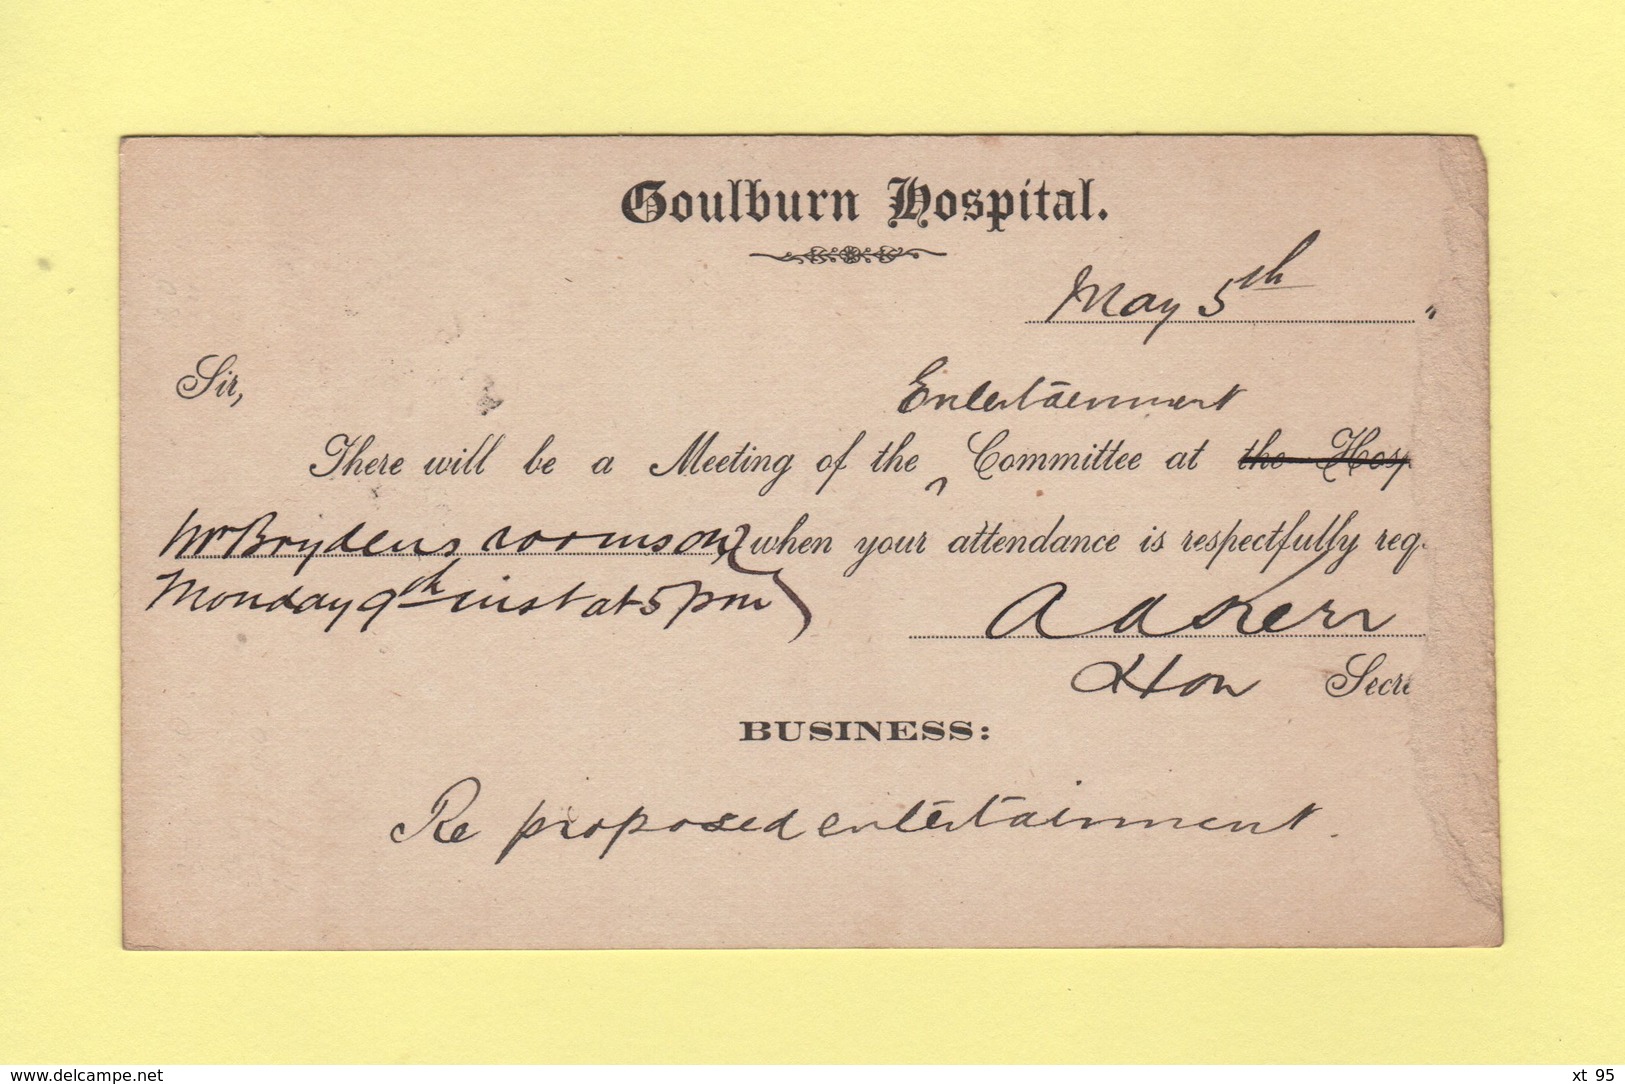 Goulburn Hospital.
May 5th
Sir,
Entertainment
There will be a Meeting of the ^ Committee at the Hosp
Mr Brydens rooms on when your attendance is respectfully req
Monday 9th inst at 5 pm
A A Kerr
Hon Secre
BUSINESS:
Re proposed entertainment.
www.delcampe.net
xt 95